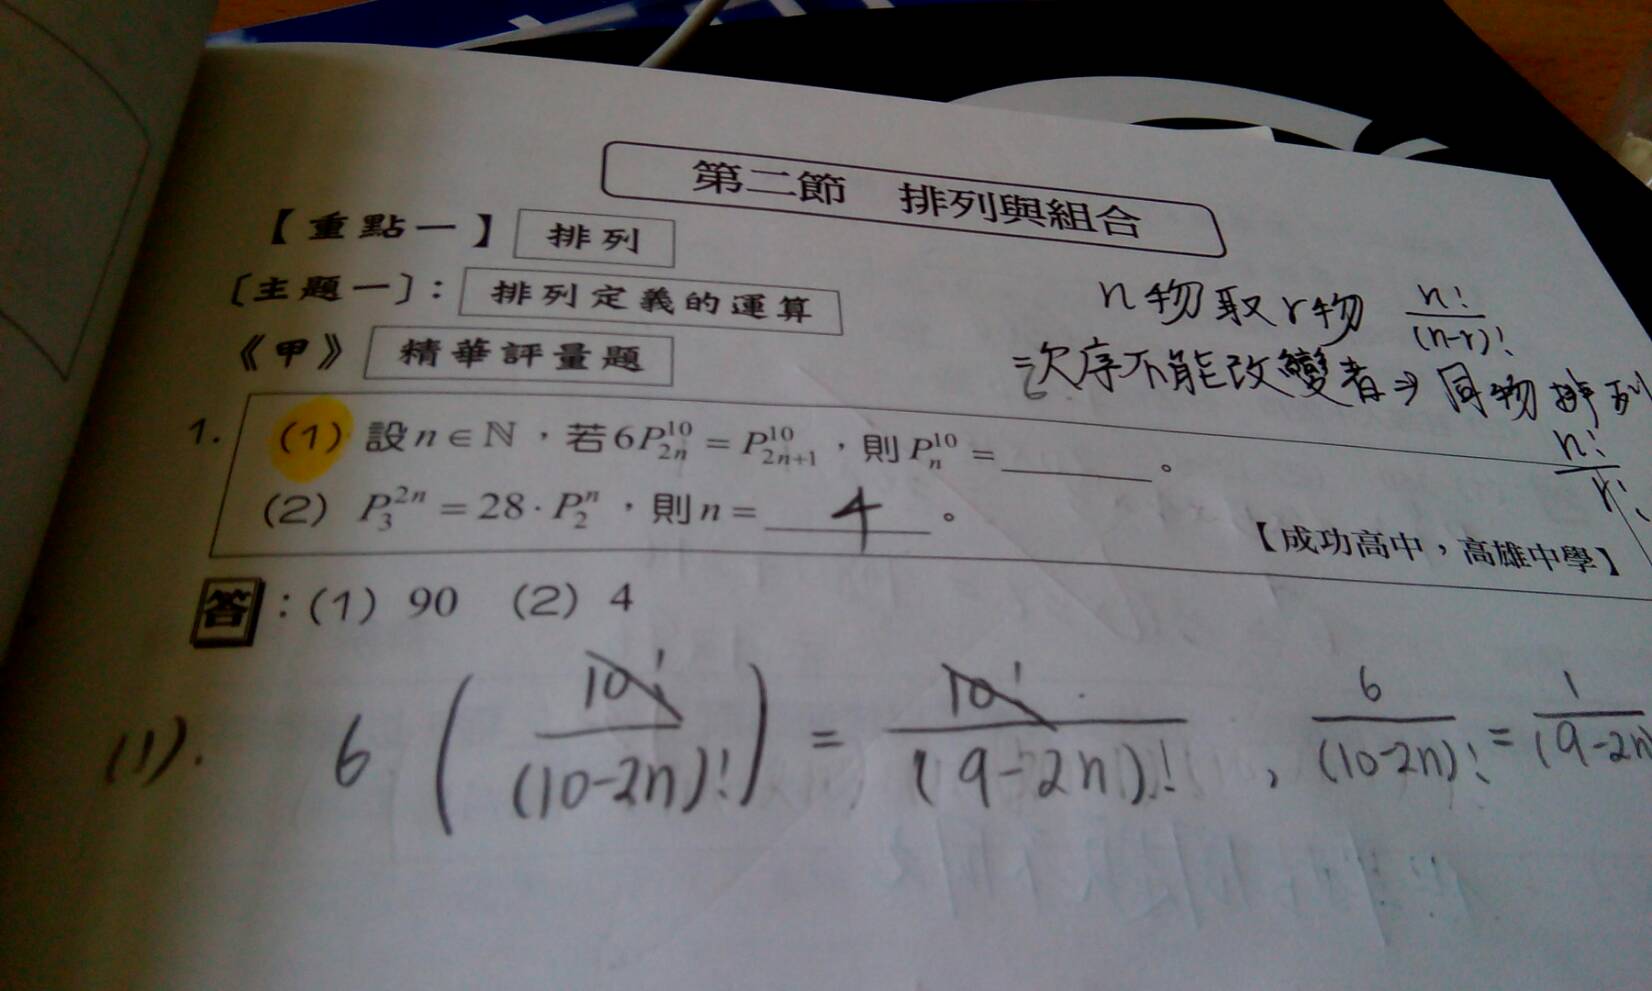 第二節 排列與組合
【重點一】 排列
〔主題一〕： 排列定義的運算
《甲》 精華評量題
n物取r物 n!/(n-r)!
次序不能改變者⇒同物排列
n!/r!
1. (1) 設 n ∈ ℕ，若 6P_{2n}^{10} = P_{2n+1}^{10}，則 P_n^{10} = ______。
(2) P_3^{2n} = 28 · P_2^n，則 n = 4。
【成功高中，高雄中學】
答：(1) 90 (2) 4
(1). 6 ( 10!/(10-2n)! ) = 10!/(9-2n)! , 6/(10-2n)! = 1/(9-2n)